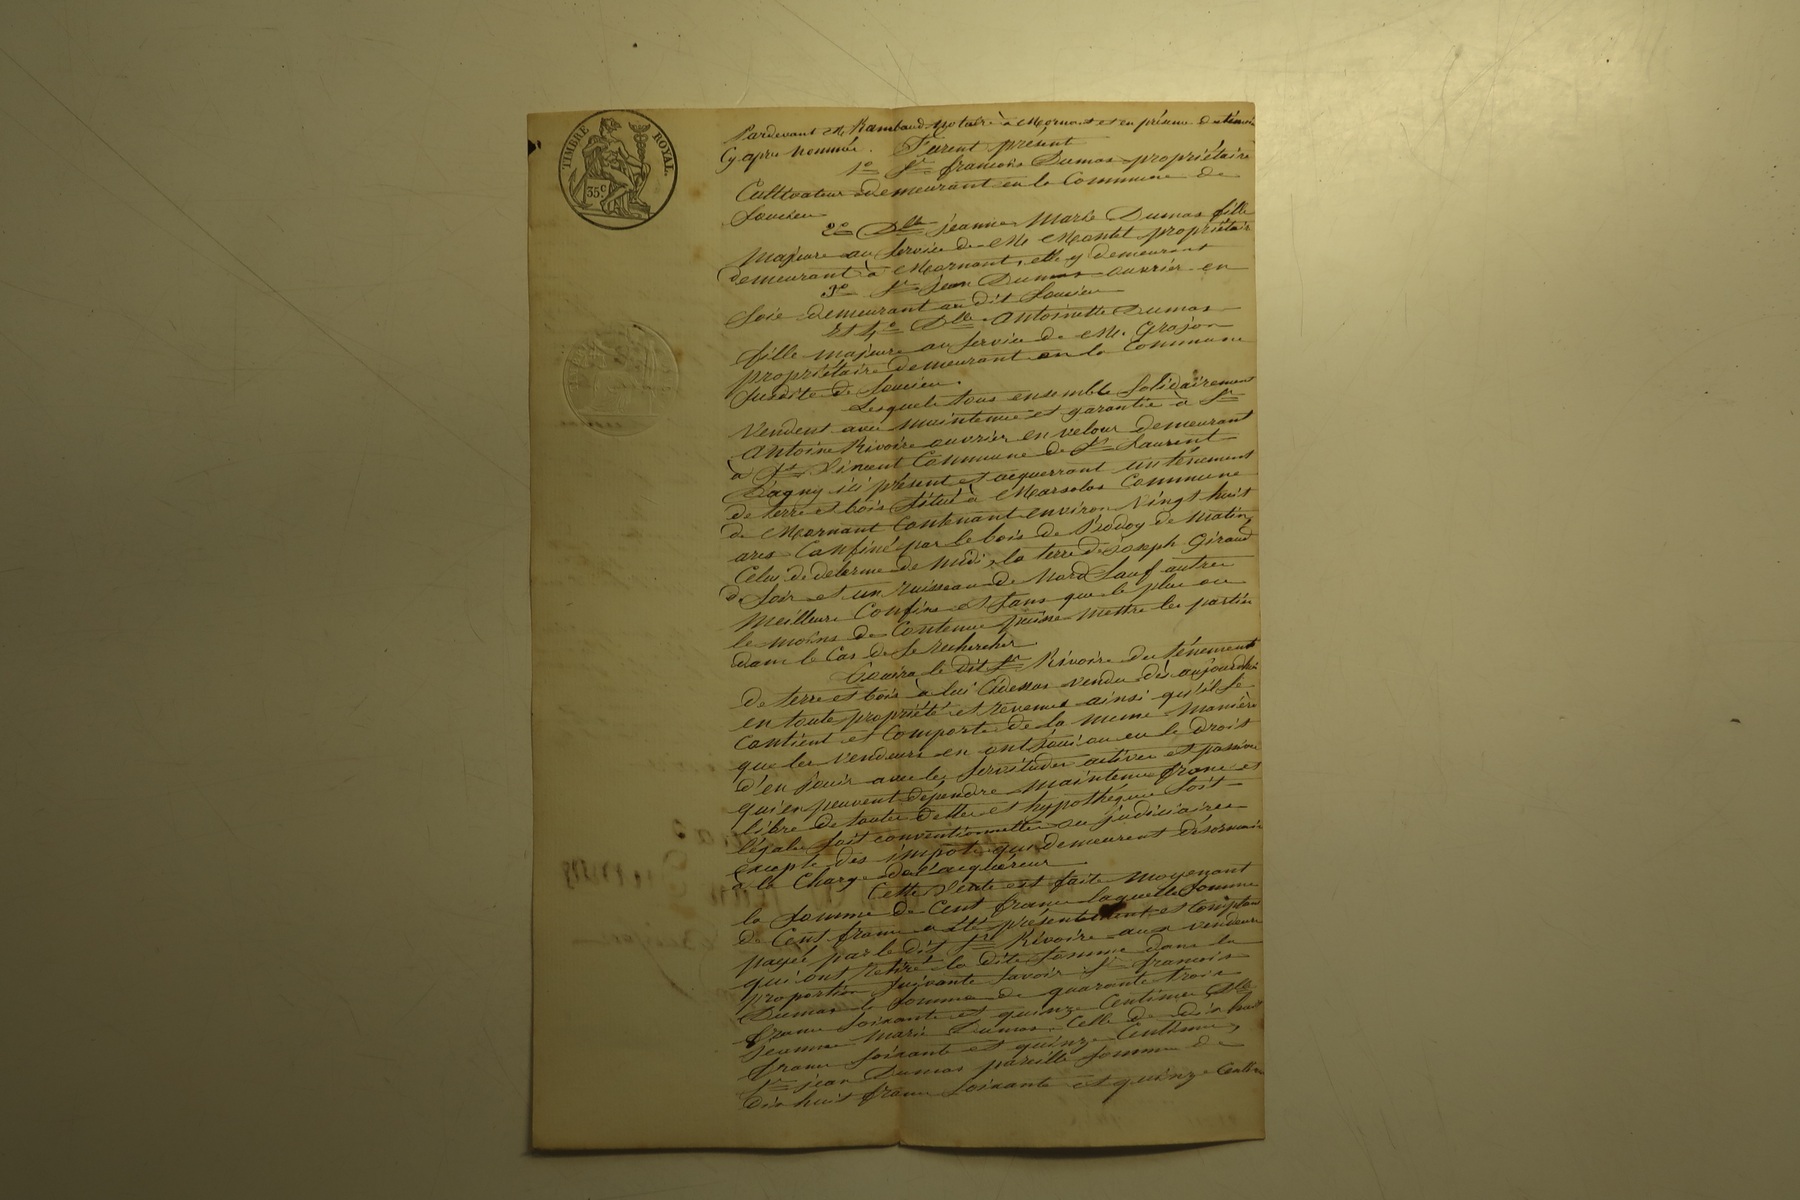 TIMBRE ROYAL.
35 c
Pardevant Me Rambaud Notaire à Mornant et en présence des témoins
Cy après nommés. Furent présent
1o Sr. françois Dumas propriétaire
Cultivateur demeurant en la Commune de
Soucieu
2o Dlle jeanne Marie Dumas fille
Majeure au Service de Mr Montet propriétaire
demeurant à Mornant, elle y demeurant
3o Sr jean Dumas ouvrier en
Soie demeurant au dit Soucieu
Et 4o Dlle Antoinette Dumas
fille majeure au Service de Mr. Grajon
propriétaire demeurant en la Commune
Susdite de Soucieu.
Lesquels tous ensemble Solidairement
Vendent avec maintenue et garantie à Sr
Antoine Rivoire ouvrier en velour demeurant
à St Vincent Commune de St Laurent
D'agny ici présent et acquerrant un ténement
de terre et bois Situé à Marsolas Commune
de Mornant Contenant environ Vingt huit
ares Confiné par le bois de de matin,
Celui de delerme de Midi, la terre de Joseph Giraud
de Soir et un ruisseau de Nord Sauf autres
Meilleurs Confins et Sans que le plus ou
le moins de Contenue puisse mettre les parties
dans le Cas de Se rechercher
Jouira le dit Sr Rivoire du ténement
de terre et bois à lui Cidessus vendu dès aujourdhui
en toute propriété et revenus ainsi qu'il Se
Contient et Comporte de la même manière
que les vendeurs en ont joui ou eu le droit
d'en jouir avec les Servitudes actives et passives
qui en peuvent dépendre maintenu franc et
libre de toutes dettes et hypothéques Soit
légales Soit conventionnelles ou judiciaires
excepté des impôts qui demeurent désormais
à la Charge de l'acquéreur
Cette Vente est faite moyenant
la Somme de Cent francs laquelle Somme
de Cent francs a été présentement et Comptant
payée par le dit Sr Rivoire aux vendeurs
qui ont Retiré la dite Somme dans la
proportion Suivante Savoir Sr françois
Dumas la Somme de quarante trois
francs Soixante et quinze Centimes Dlle
jeanne Marie Dumas Celle de dix huit
francs Soixante et quinze Centimes,
Sr jean Dumas pareille Somme de
dix huit francs Soixante et quinze Centimes